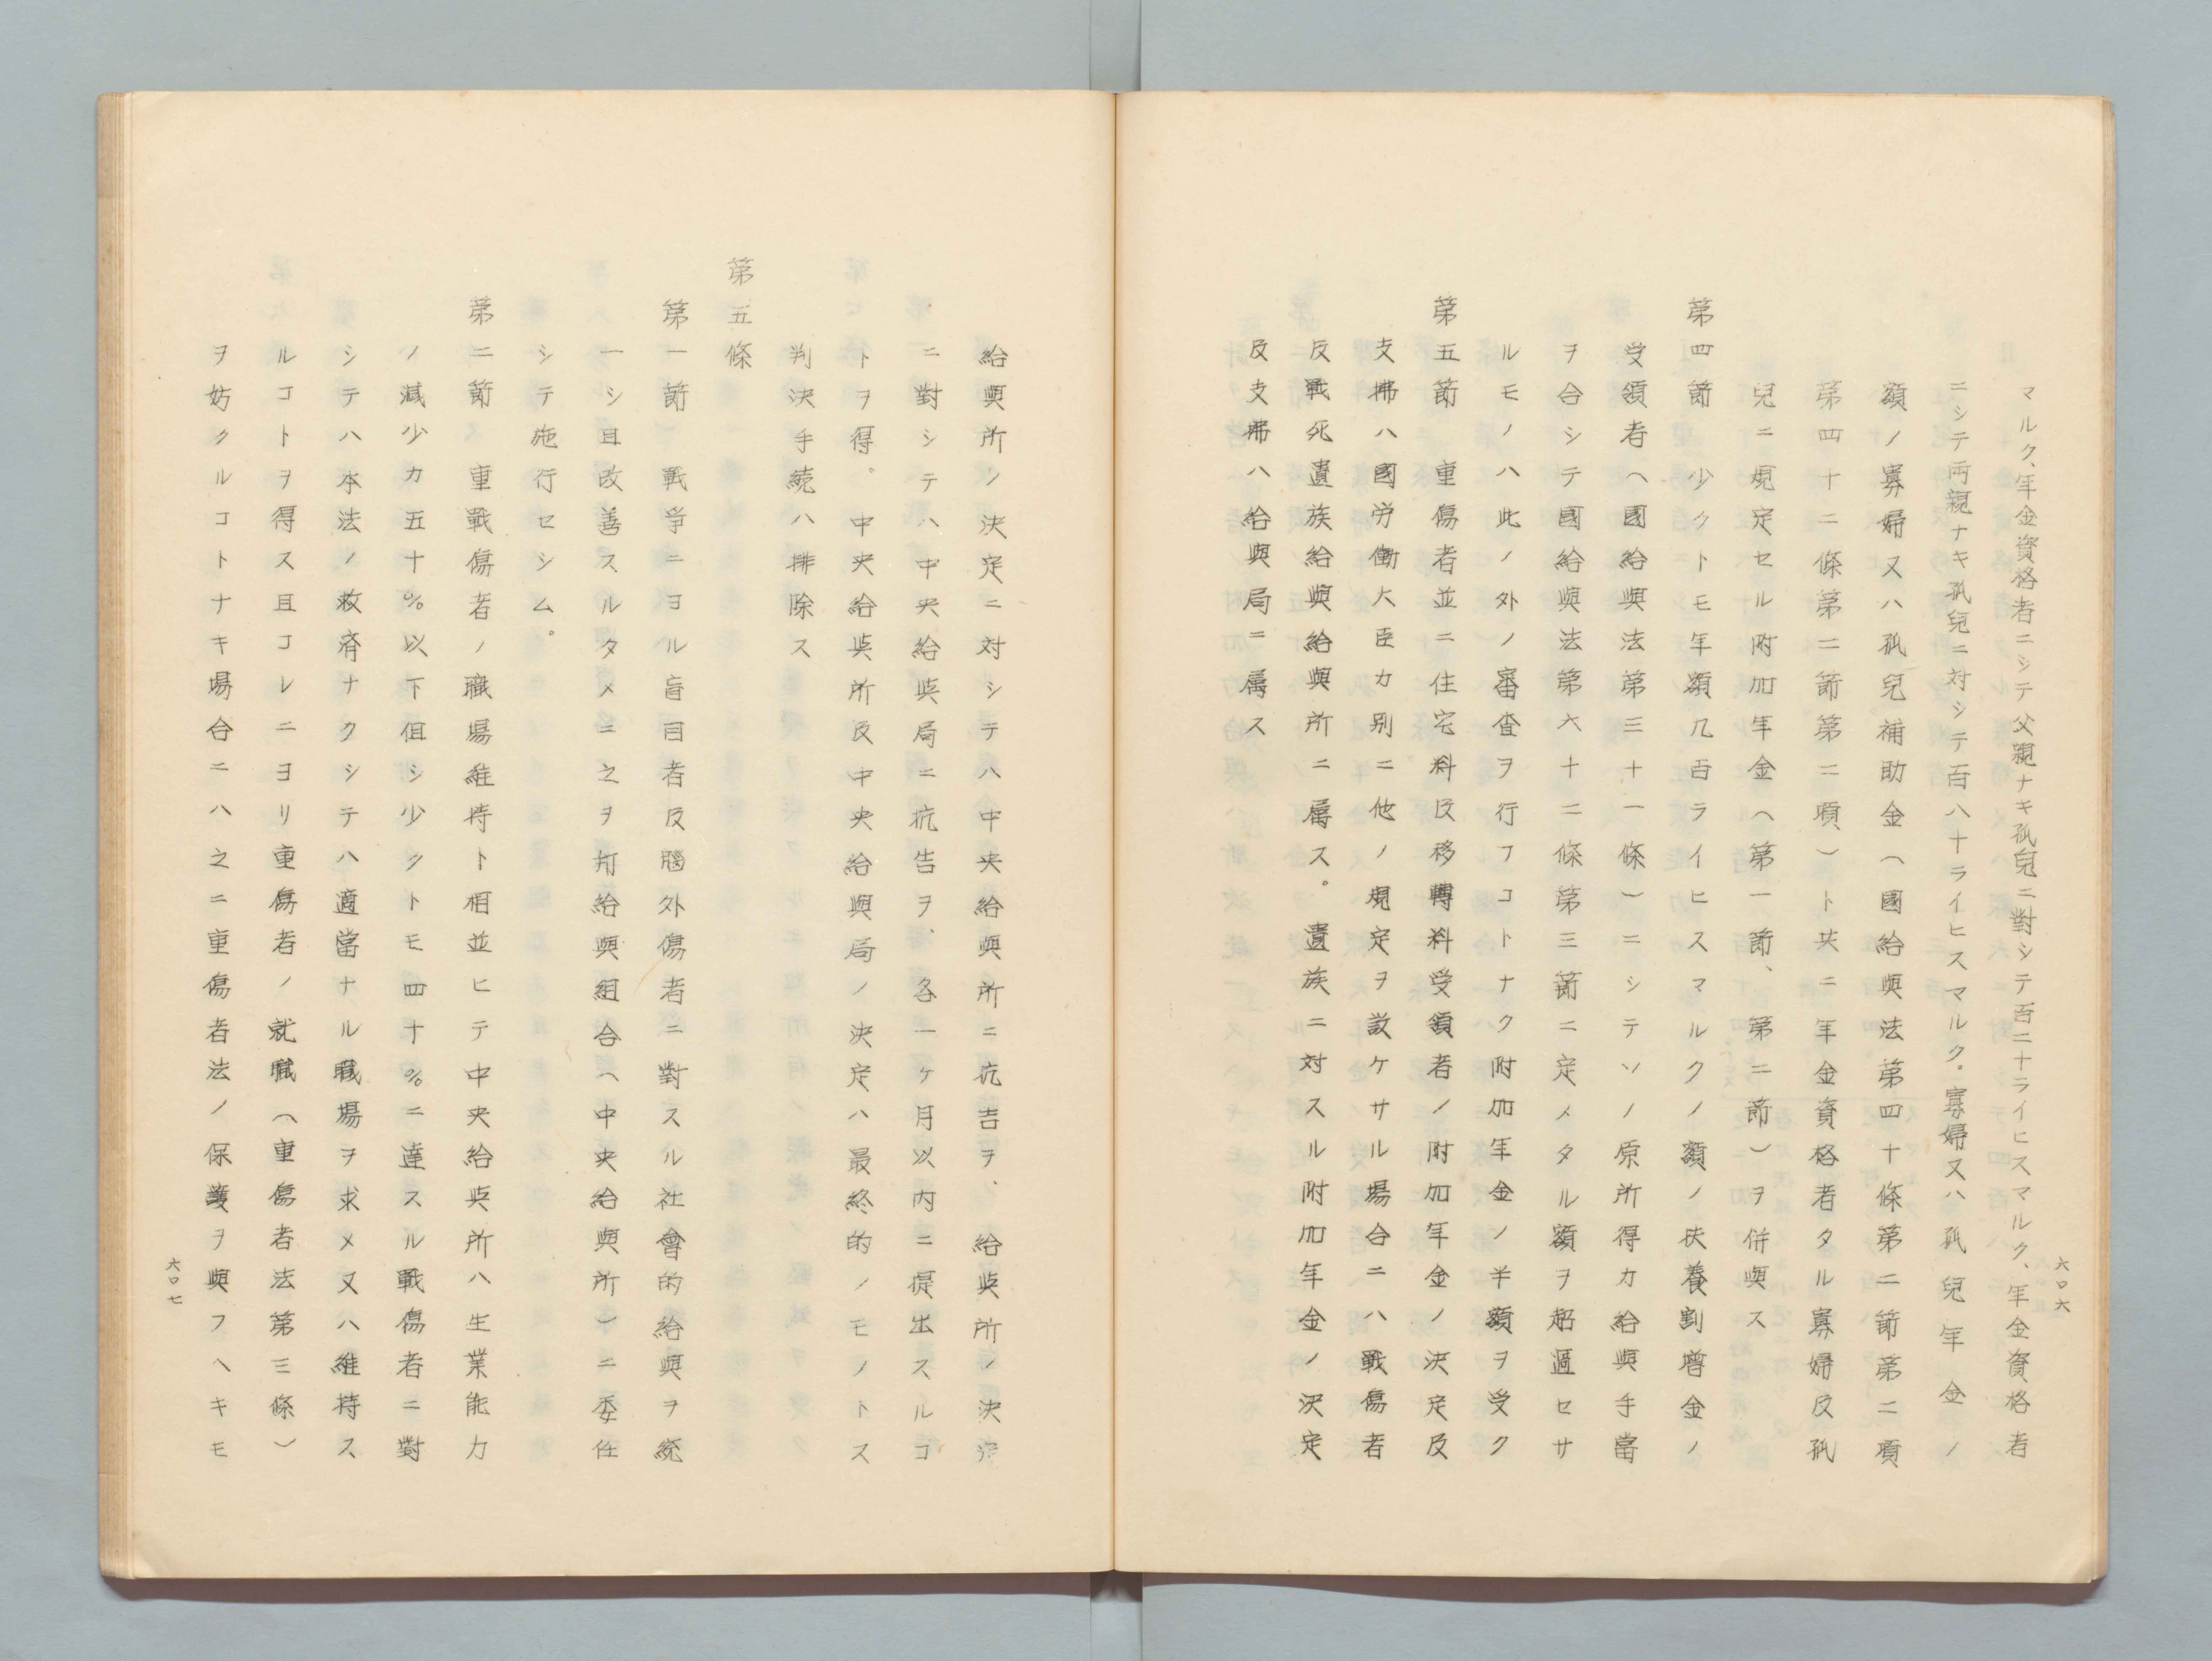 マルク、年金資格者ニシテ父親ナキ孤兒ニ對シテ百二十ライヒスマルク、年金資格者
ニシテ両親ナキ孤兒ニ対シテ百八十ライヒスマルク。寡婦又ハ孤兒年金ノ
額ノ寡婦又ハ孤兒補助金（國給與法第四十條第二節第二項
第四十二條第二節第二項）ト共ニ年金資格者タル寡婦及孤
兒ニ規定セル附加年金（第一節、第二節）ヲ併與ス
第四節　少クトモ年額九百ライヒスマルクノ額ノ扶養割増金ノ
受領者（國給與法第三十一條）ニシテソノ原所得カ給與手當
ヲ合シテ國給與法第六十二條第三節ニ定メタル額ヲ超過セサ
ルモノハ此ノ外ノ審査ヲ行フコトナク附加年金ノ半額ヲ受ク
第五節　重傷者並ニ住宅料及移轉料受領者ノ附加年金ノ決定及
支拂ハ國労働大臣カ別ニ他ノ規定ヲ設ケサル場合ニハ戰傷者
及戰死遺族給與給與所ニ属ス。遺族ニ対スル附加年金ノ決定
及支拂ハ給與局ニ属ス
六〇六
給與所ノ決定ニ対シテハ中央給與所ニ抗吉ヲ、給與所ノ決定
ニ對シテハ中央給與局ニ抗告ヲ、各一ヶ月以内ニ提出スルコ
トヲ得。中央給與所及中央給與局ノ決定ハ最終的ノモノトス
判決手続ハ排除ス
第五條
第一節　戰爭ニヨル盲目者及腦外傷者ニ對スル社會的給與ヲ統
一シ且改善スルタメニ之ヲ剏給與組合（中央給與所）ニ委任
シテ施行セシム。
第二節　重戰傷者ノ職場維持ト相並ヒテ中央給與所ハ生業能力
ノ減少カ五十％以下但シ少クトモ四十％ニ達スル戰傷者ニ對
シテハ本法ノ救済ナクシテハ適當ナル職場ヲ求メ又ハ維持ス
ルコトヲ得ス且コレニヨリ重傷者ノ就職（重傷者法第三條）
ヲ妨クルコトナキ場合ニハ之ニ重傷者法ノ保護ヲ與フヘキモ
六〇七